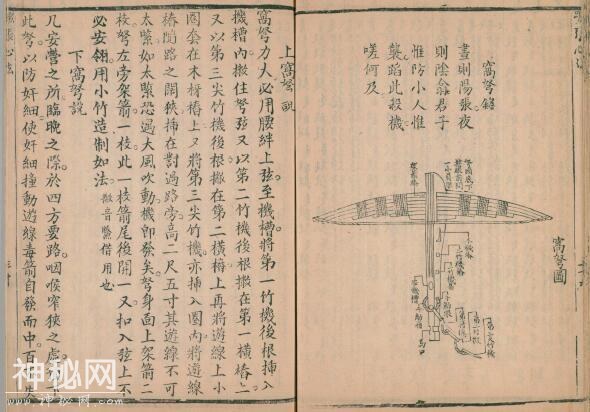 窩弩銘
晝則陽張夜
則陰翕君子
惟防小人惟
襲蹈此殺機
嗟何及
窩弩圖
上窩弩說
窩弩力大必用腰絆上弦至機槽將第一竹機後根揷入
機槽內撳住弩弦又以第二竹機後根撳在第一橫樁上
又以第三尖竹機後根撳在第二橫樁上再將遊線上小
圈套在木枒樁上又將第三尖竹機亦揷入圈內將遊線
樁隨路之闊狹揷在對過路旁高二尺五寸其遊線不可
太緊如太緊恐遇大風吹動機卽發矣弩身面上架箭二
枝弩左旁架箭一枝此一枝箭尾後開一叉扣入弦上不
必安翎用小竹造制如法
下窩弩說
凡安營之所臨晚之際於四方要路咽喉窄狹之處
此弩以防奸細使奸細撞動遊線毒箭自發而中百
神秘网
WWW.SHENMIW.COM